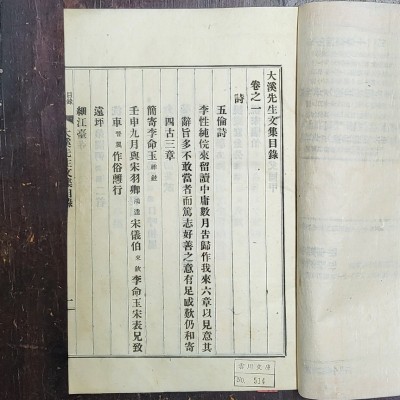 大溪先生文集目錄
卷之一
詩
五倫詩
李性純㑆來留讀中庸數月告歸作我來六章以見意其
辭旨多不敢當者而篤志好善之意有足感歎仍和寄
四古三章
簡寄李命玉
壬申九月與宋羽卿 宋儀伯 李命玉宋表兄致
車 作俗離行
遠坪
細江臺
目錄
大溪先生文集目錄
一
No. 514